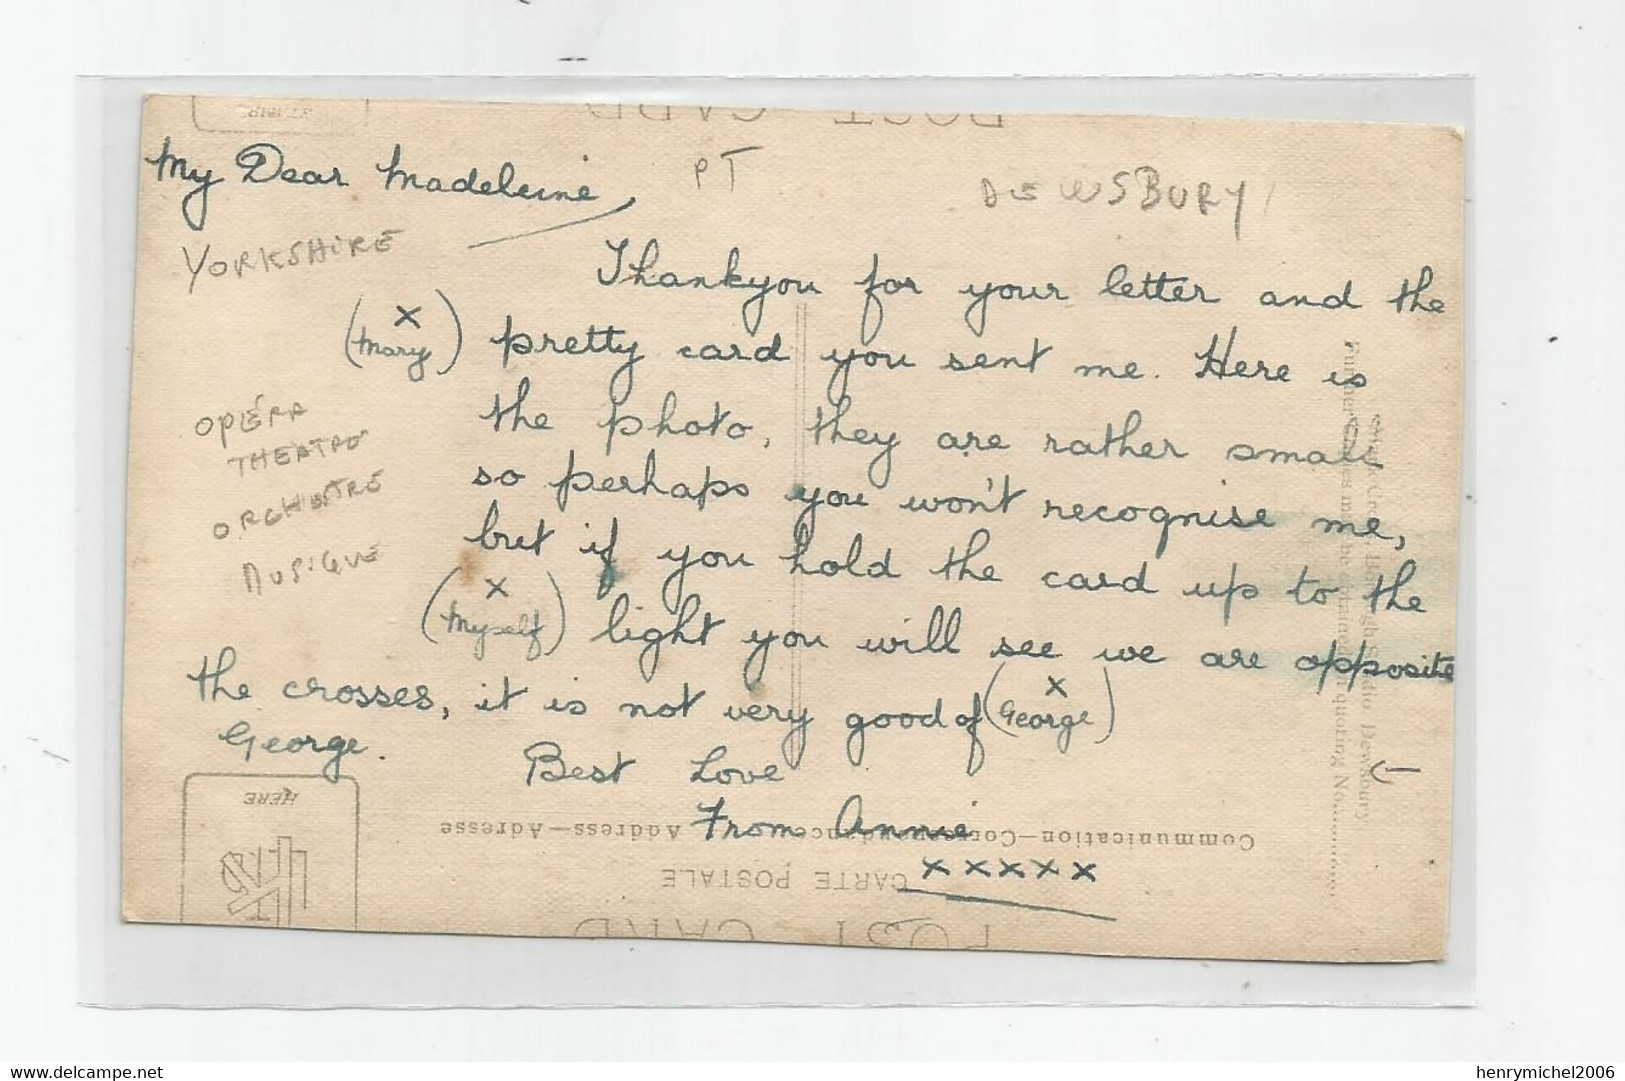 POST CARD
STAMP
My Dear Madeleine,
PT
DEWSBURY
YORKSHIRE
Thankyou for your letter and the
(Mary) x pretty card you sent me. Here is
OPÉRA
THEATRE
ORCHESTRE
MUSIQUE
the photo, they are rather small
so perhaps you won't recognise me,
but if you hold the card up to the
(Myself) x light you will see we are opposite
the crosses, it is not very good of (George) x
George.
Best Love
From Annie
x x x x x
HERE
Communication—Correspondance Address—Adresse
CARTE POSTALE
POST CARD
Studio, Dewsbury
Further Copies may be obtained quoting No.
henrymichel2006
www.delcampe.net